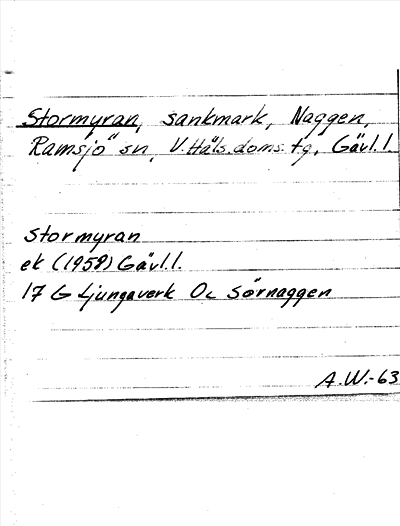 Stormyran, sankmark, Naggen,
Ramsjö sn, V. Häls. doms. tg, Gävl. l.
Stormyran
ek (1958) Gävl. l.
17 G Ljungaverk Oc Sörnaggen
A. W. - 63